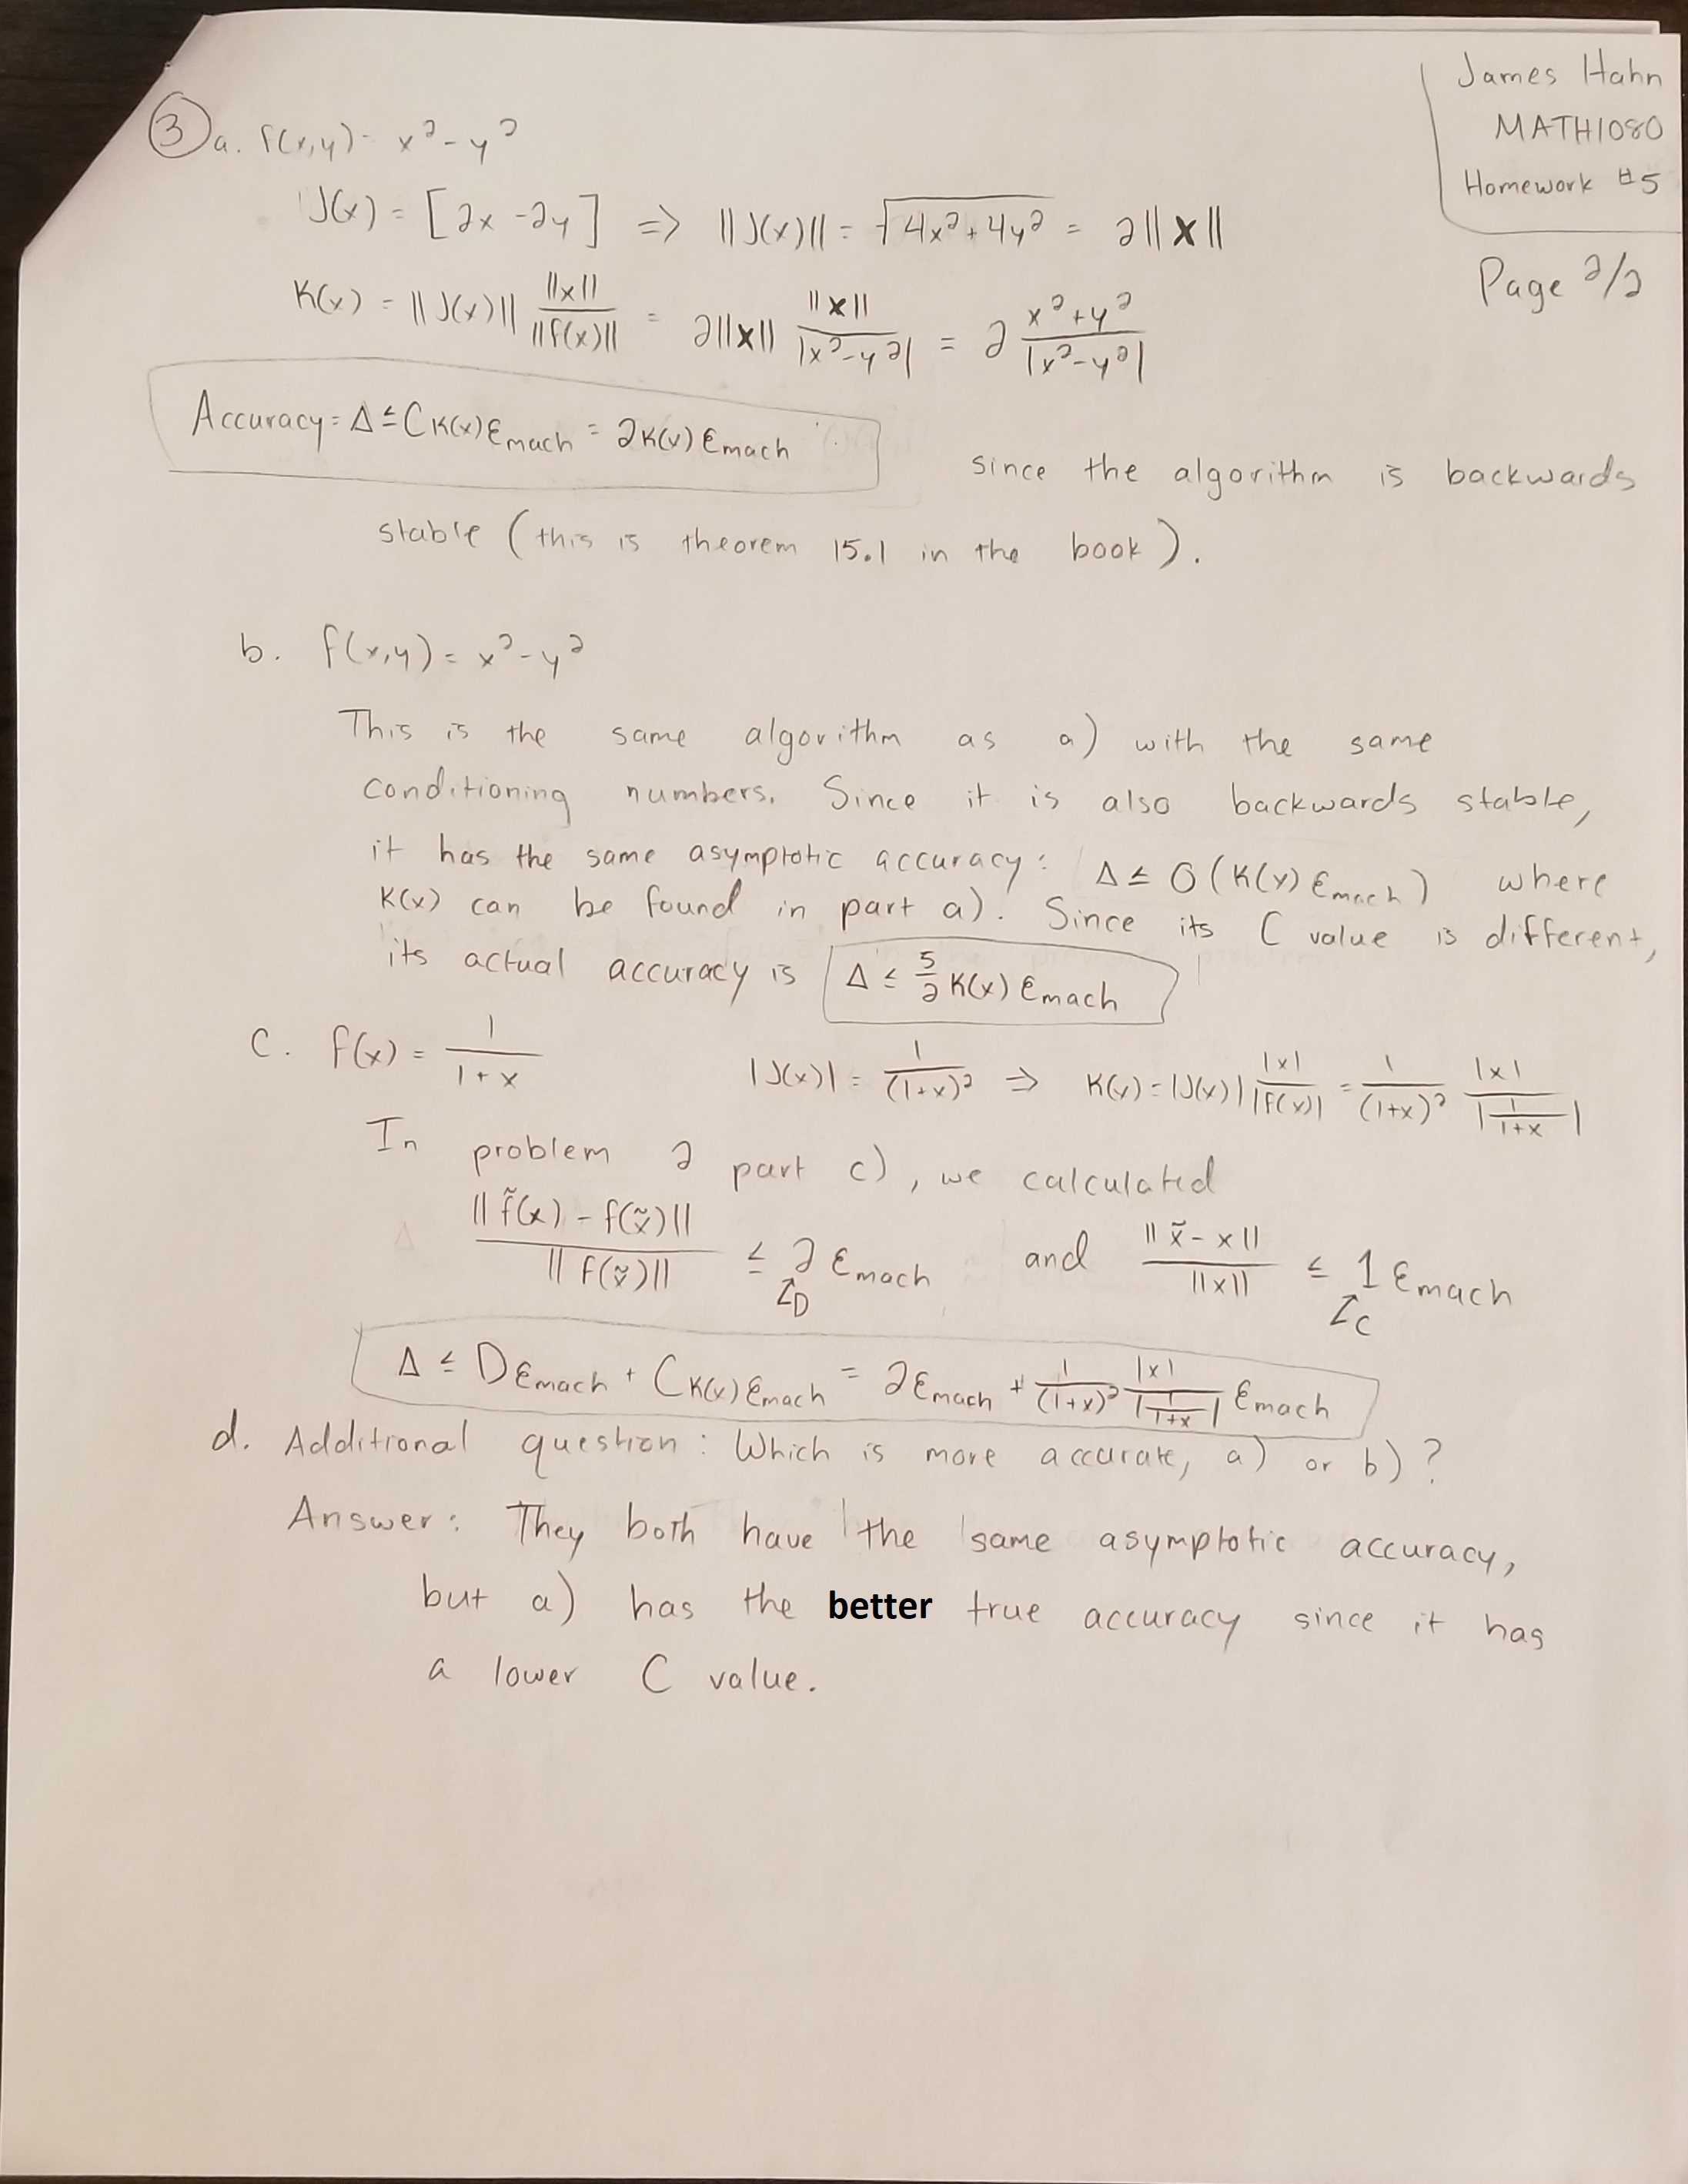 James Hahn
MATH1080
Homework #5
Page 2/2
3 a. f(x,y) = x² - y²
J(x) = [2x -2y] => ||J(x)|| = √(4x² + 4y²) = 2||x||
K(x) = ||J(x)|| ||x|| / ||f(x)|| = 2||x|| ||x|| / |x²-y²| = 2 (x²+y²) / |x²-y²|
Accuracy = Δ ≤ C K(x) Emach = 2 K(x) Emach
since the algorithm is backwards
stable (this is theorem 15.1 in the book).
b. f(x,y) = x² - y²
This is the same algorithm as a) with the same
conditioning numbers. Since it is also backwards stable,
it has the same asymptotic accuracy: Δ ≤ O(K(x) Emach) where
K(x) can be found in part a). Since its C value is different,
its actual accuracy is Δ ≤ 5/2 K(x) Emach
c. f(x) = 1/(1+x) |J(x)| = 1/(1+x)² => K(x) = |J(x)| |x|/|f(x)| = 1/(1+x)² |x| / |1/(1+x)|
In problem 2 part c), we calculated
||f̃(x) - f(x̃)|| / ||f(x̃)|| ≤ 2 Emach and ||x̃ - x|| / ||x|| ≤ 1 Emach
↑D ↑C
Δ ≤ D Emach + C K(x) Emach = 2 Emach + 1/(1+x)² |x| / |1/(1+x)| Emach
d. Additional question: Which is more accurate, a) or b)?
Answer: They both have the same asymptotic accuracy,
but a) has the better true accuracy since it has
a lower C value.